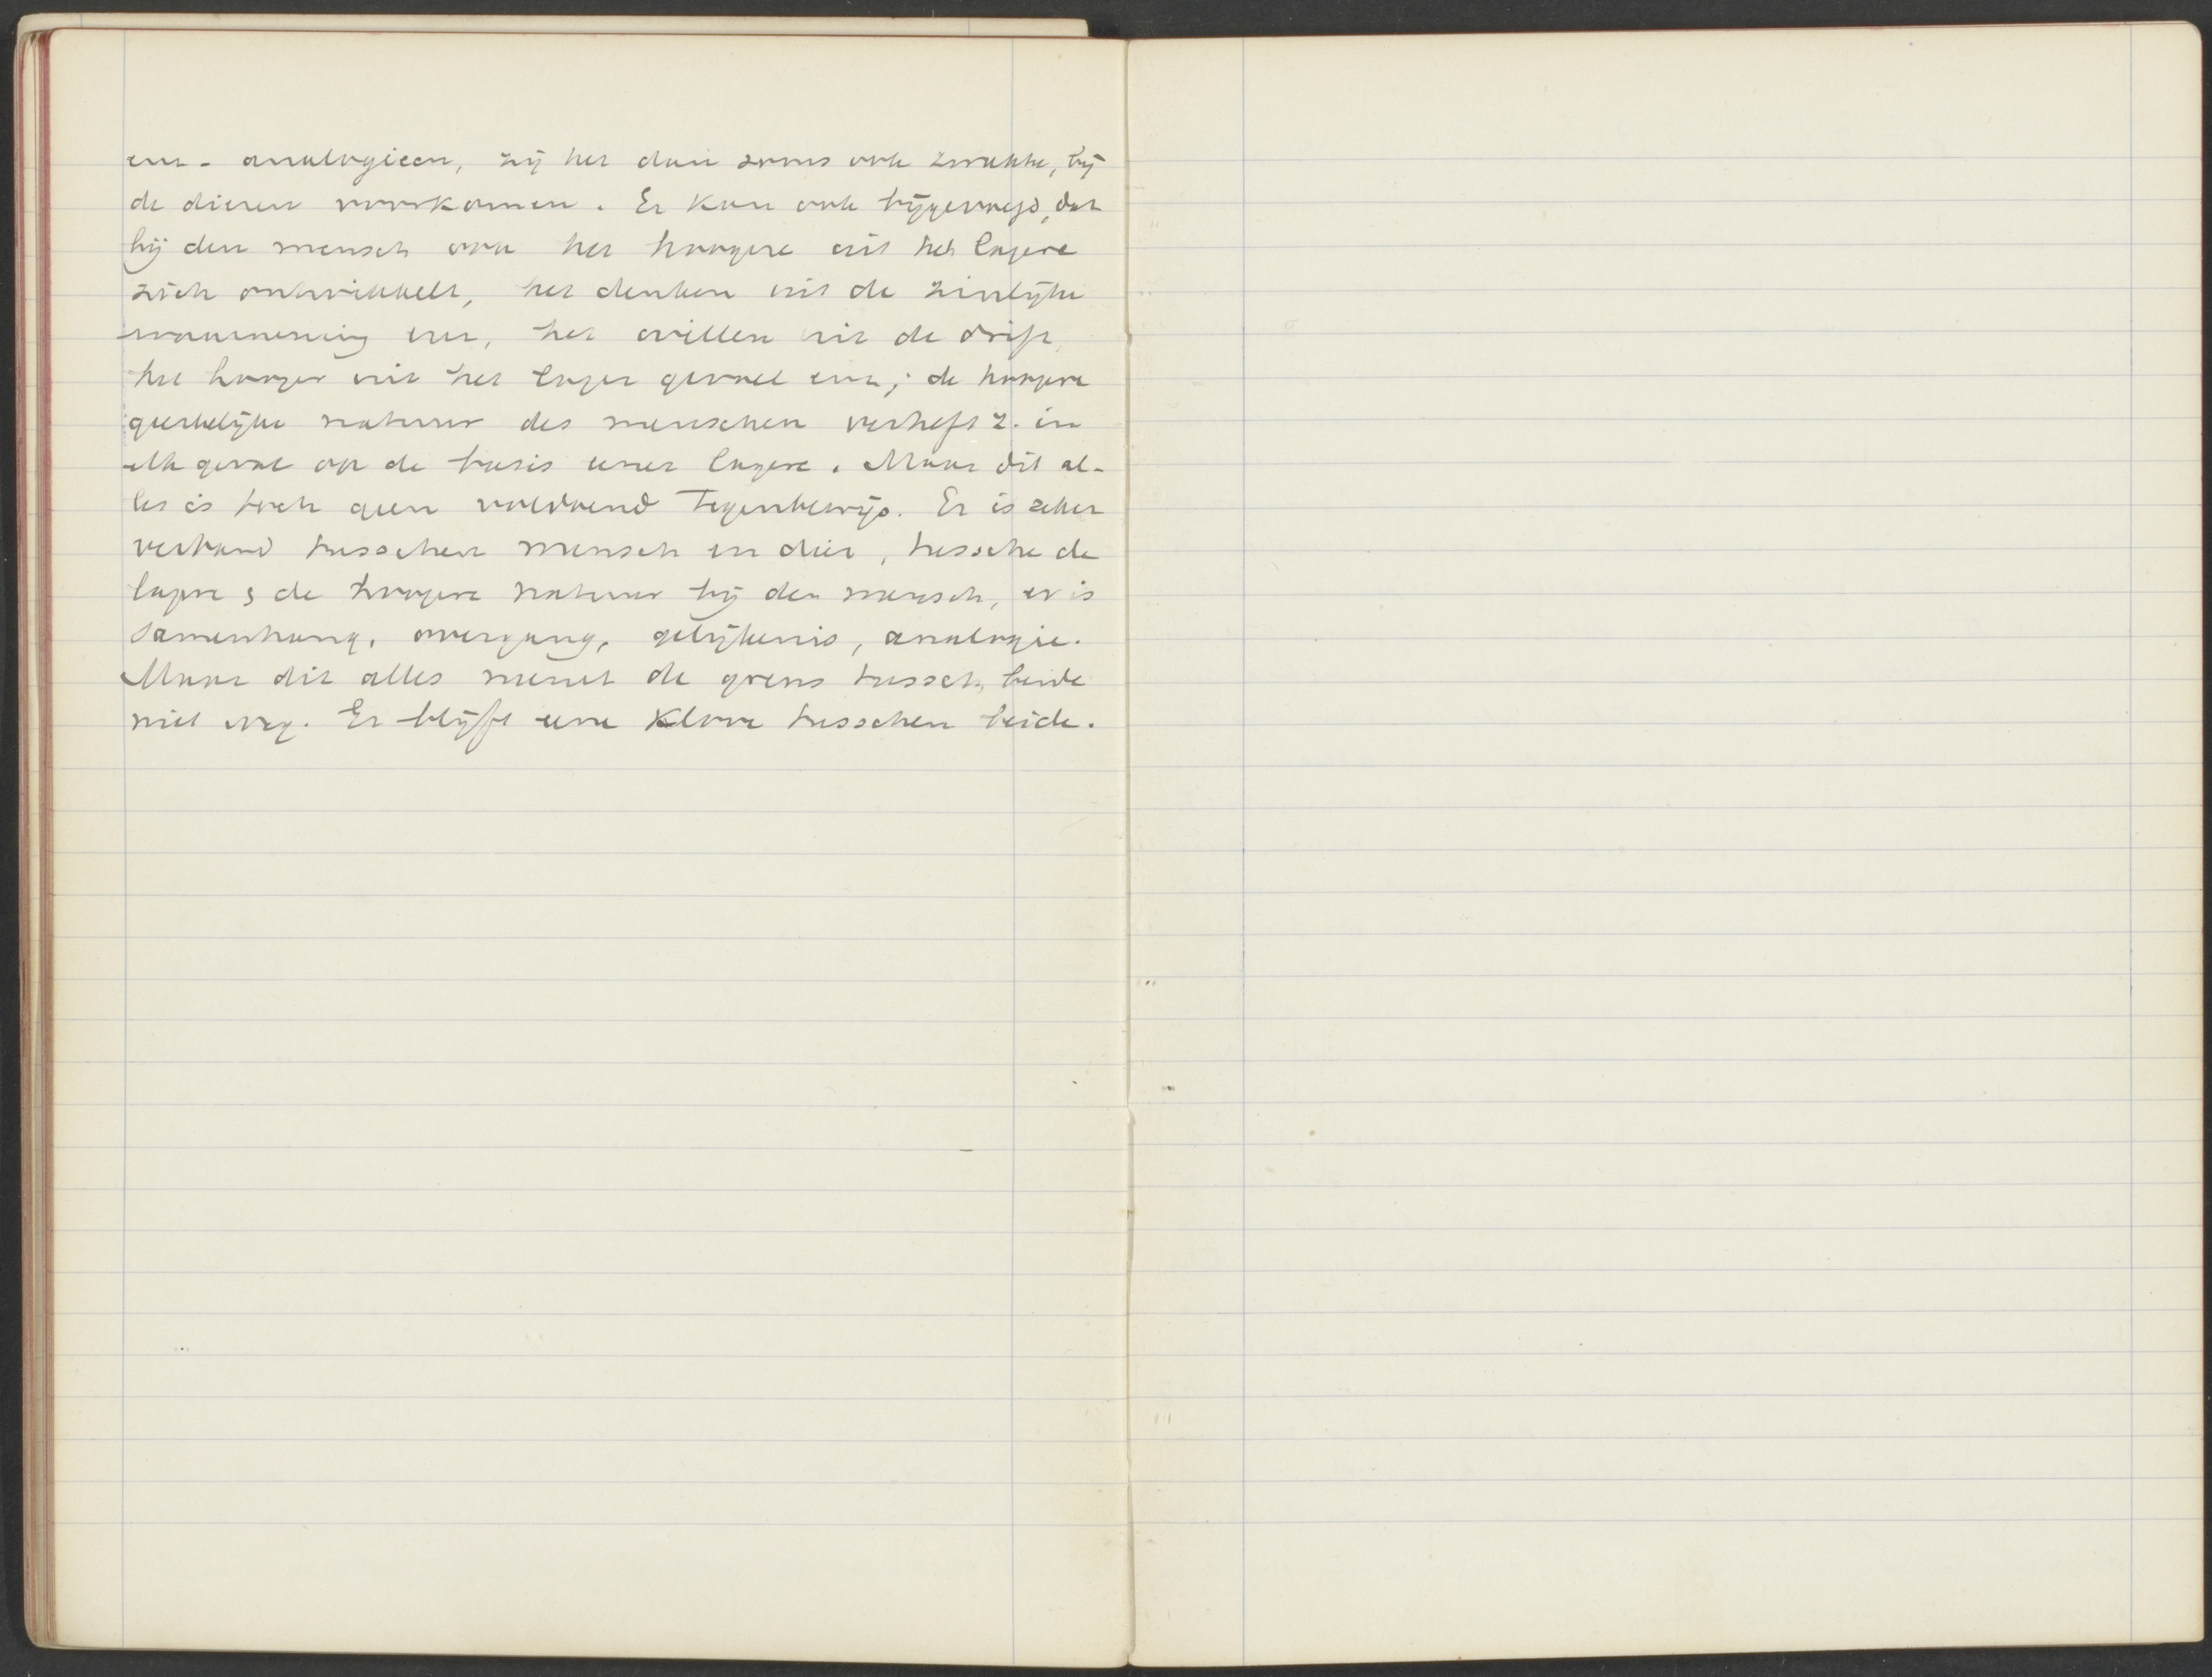 enz. analogieen, zij het dan soms ook zwakke, bij
de dieren voorkomen. Er kan ook bijgevoegd, dat
bij den mensch ook het hoogere uit het lagere
zich ontwikkelt, het denken uit de zinlijke
waarneming enz, het willen uit de drift,
het hooger uit het lager gevoel enz; de hoogere
geestelijke natuur des menschen verheft z. in
elk geval op de basis eener lagere. Maar dit al-
les is toch geen voldoend Tegenbewijs. Er is zeker
verband tusschen mensch en dier, tussche de
lagere & de hoogere natuur bij den mensch, er is
samenhang, overgang, gelijkenis, analogie.
Maar dit alles neemt de grens tussch, beide
niet weg. Er blijft eene Kloove tusschen beide.